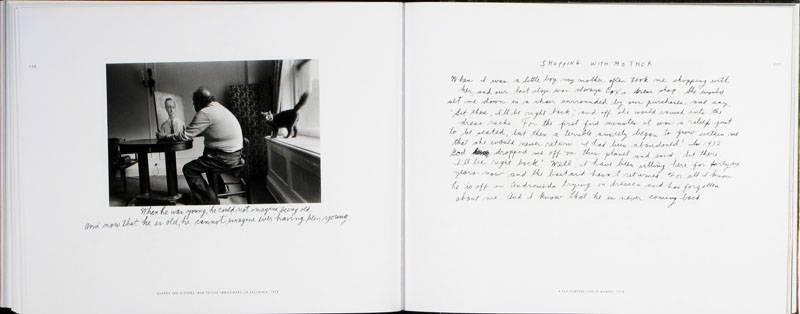 When he was young, he could not imagine being old
and now that he is old, he cannot imagine ever having been young
SHOPPING WITH MOTHER
When I was a little boy my mother often took me shopping with
her, and our last stop was always a dress shop. She would
set me down in a chair surrounded by our purchases, and say,
"Sit there, I'll be right back," and off she would vanish into the
dress racks. For the first minutes it was a relief just
to be seated, but then a terrible anxiety began to grow within me
that she would never return. I had been abandoned! In 1932
God dropped me off on this planet and said, "Sit there
I'll be right back! Well, I have been sitting here for
years now and the bastard hasn't returned. For all I know
he is off in Andromeda trying on dresses and has forgotten
about me. And I know that he is never coming back